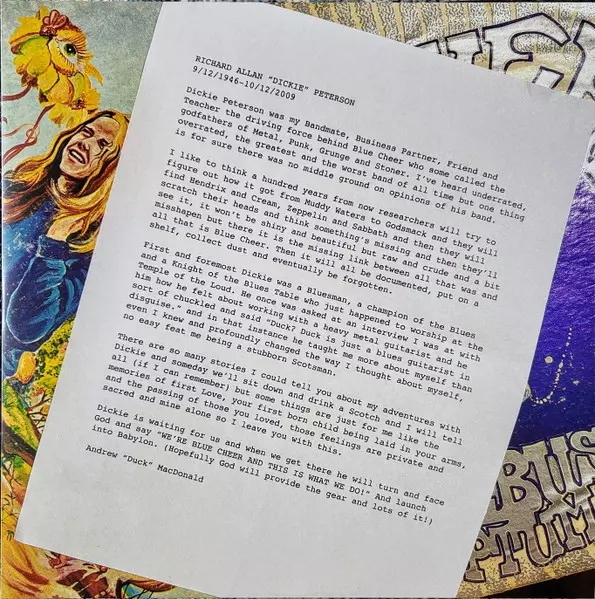 RICHARD ALLAN "DICKIE" PETERSON
9/12/1946-10/12/2009
Dickie Peterson was my Bandmate, Business Partner, Friend and
Teacher the driving force behind Blue Cheer who some called the
godfathers of Metal, Punk, Grunge and Stoner. I've heard underrated,
overrated, the greatest and the worst band of all time but one thing
is for sure there was no middle ground on opinions of his band.
I like to think a hundred years from now researchers will try to
figure out how it got from Muddy Waters to Godsmack and they will
find Hendrix and Cream, Zeppelin and Sabbath and then they will
scratch their heads and think something's missing and then they'll
see it, it won't be shiny and beautiful but raw and crude and a bit
misshapen but there it is the missing link between all that was and
all that is Blue Cheer. Then it will all be documented, put on a
shelf, collect dust and eventually be forgotten.
First and foremost Dickie was a Bluesman, a champion of the Blues
and a Knight of the Blues Table who just happened to worship at the
Temple of the Loud. He once was asked at an interview I was at with
him how he felt about working with a heavy metal guitarist and he
sort of chuckled and said "Duck? Duck is just a blues guitarist in
disguise." and in that instance he taught me more about myself than
even I knew and profoundly changed the way I thought about myself,
no easy feat me being a stubborn Scotsman.
There are so many stories I could tell you about my adventures with
Dickie and someday we'll sit down and drink a Scotch and I will tell
all (if I can remember) but some things are just for me like the
memories of first Love, your first born child being laid in your arms,
and the passing of those you loved, those feelings are private and
sacred and mine alone so I leave you with this.
Dickie is waiting for us and when we get there he will turn and face
God and say "WE'RE BLUE CHEER AND THIS IS WHAT WE DO!" And launch
into Babylon. (Hopefully God will provide the gear and lots of it!)
Andrew "Duck" MacDonald